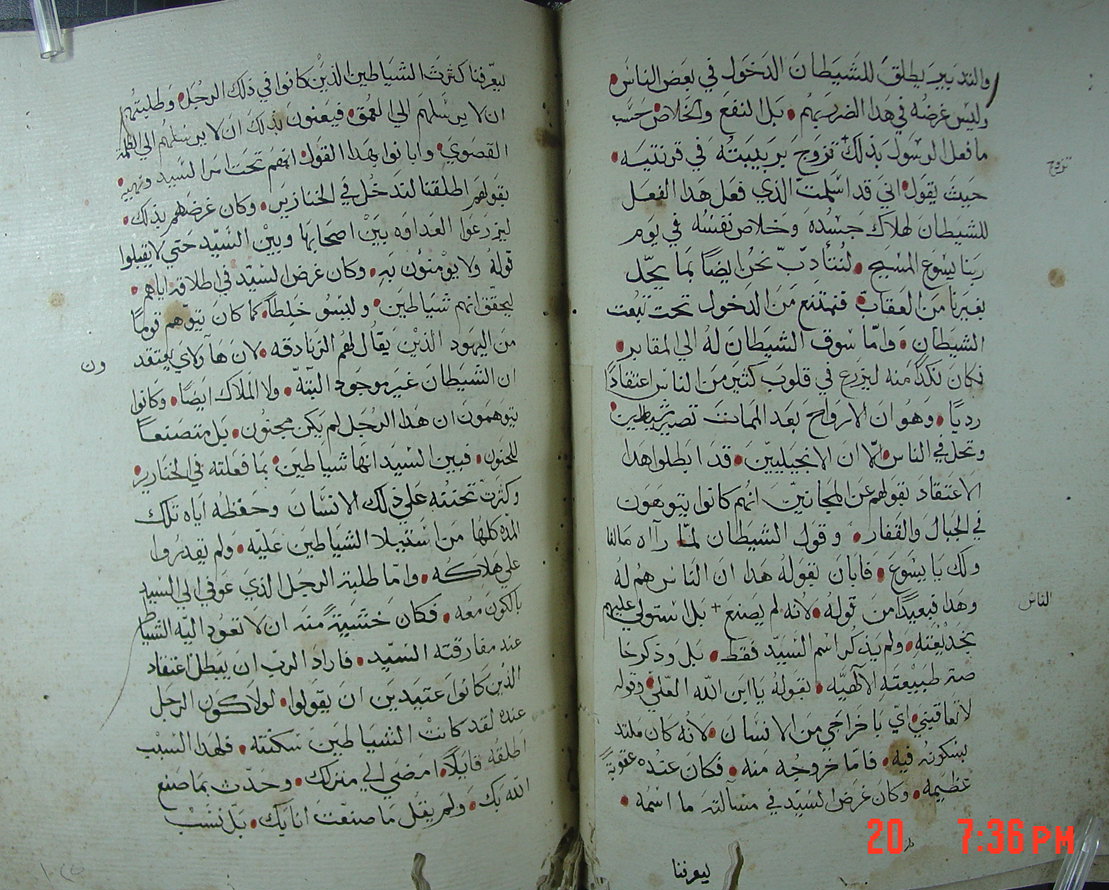 والتدبير يطلق للشيطان الدخول في بعض الناس
وليس غرضه في هذا الضرر بهم بل النفع والخلاص حسب
ما فعل الرسول بذلك تزوج بربيبته في قرنتيه
تزوج
حيث يقول اني قد اسلمت الذي فعل هذا الفعل
للشيطان لهلاك جسده وخلاص نفسه في يوم
ربنا يسوع المسيح لنتادب نحن ايضا بما يحل
بغيرنا من العقاب فنمتنع من الدخول تحت
الشيطان واما سوق الشيطان له الي المقابر
فكان لنكد منه ليزرع في قلوب كثير من الناس اعتقادا
رديا وهو ان الارواح بعد الممات تصير شياطين
وتحل في الناس الا ان الانجيليين قد ابطلوا هذا
الاعتقاد بقولهم عن المجانين انهم كانوا يتوهون
في الجبال والقفار وقول الشيطان لما رااه مالنا
ولك يا يسوع فابان بقوله هذا ان الناس هم له
وهذا فبعيدا من قوله لانه لم يصنع + بل يستولي عليهم
الناس
بخديعته ولم يذكر اسم السيد فقط بل وذكر خا
صة طبيعته الالهيه بقوله يا ابن الله العلي وقوله
لا تعاقبني اي باخراجي من الانسان لانه كان ملتد
بسكونه فيه فاما خروجه منه فكان عنده عقوبة
عظيمه وكان غرض السيد في مسألته ما اسمه
ليعرفنا
ليعرفنا كثرت الشياطين الذين كانوا في ذلك الرجل وطلبتهم
ان لا يرسلهم الي العمق فيعنون بذلك ان لا يرسلهم الي الظلمه
القصوي وابانوا بهذا القول انهم تحت امر السيد ونهيه
بقولهم اطلقنا لندخل في الخنازير وكان غرضهم بذلك
ليزرعوا العداوه بين اصحابها وبين السيد حتي لا يقبلوا
قوله ولا يومنون به وكان غرض السيد في اطلاقه اياهم
ليحقق انهم شياطين وليسو خلطا كما كان يتوهم قوما
من اليهود الذين يقال لهم الزنادقه لان هاولاي يعتقد
ون
ان الشيطان غير موجود البته ولا الملاك ايضا وكانوا
يتوهمون ان هذا الرجل لم يكن مجنون بل متصنعا
للجنون فبين السيد انها شياطين بما فعلته في الخنازير
وكثرت تحننه علي ذلك الانسان وحفظه اياه تلك
المده كلها من ستيلا الشياطين عليه ولم يقدروا
علي هلاكه واما طلبة الرجل الذي عوفي الي السيد
بالكون معه فكان خشية منه ان لا تعود اليه الشيا
عند مفارقته السيد فاراد الرب ان يبطل اعتقاد
الذين كانوا عتيدين ان يقولوا لولا كون الرجل
عنده لقد كانت الشياطين سكنته فلهذا السبب
اطلقه قايلا امضي الي منزلك وحدث بما صنع
الله بك ولم يقل ما صنعت انا بك بل نسب
20 7:36 PM